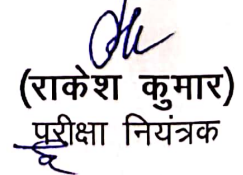 (राकेश कुमार)
परीक्षा नियंत्रक